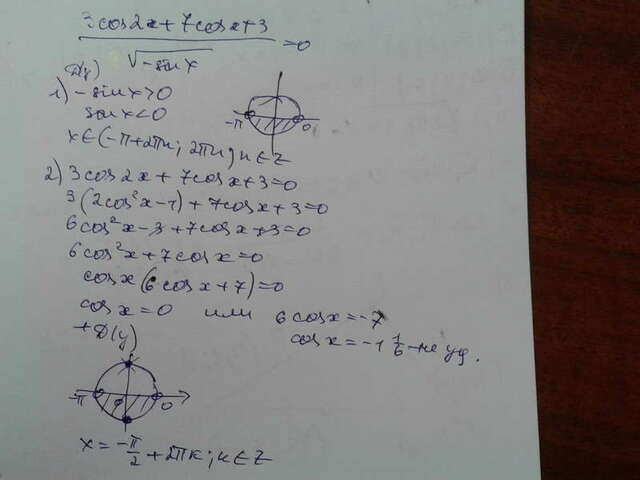 3cos2x + 7cosx + 3
√-sinx
=0
D(y)
1) -sinx>0
sinx<0
-π 0
x∈(-π+2πn; 2πn), n∈Z
2) 3cos2x + 7cosx+3=0
3(2cos²x-1)+7cosx+3=0
6cos²x-3+7cosx+3=0
6cos²x+7cosx=0
cosx(6cosx+7)=0
cosx=0 или 6cosx=-7
+D(y) cosx=-1 1/6 - не уд.
-π 0
x=-π/2+2πk; k∈Z